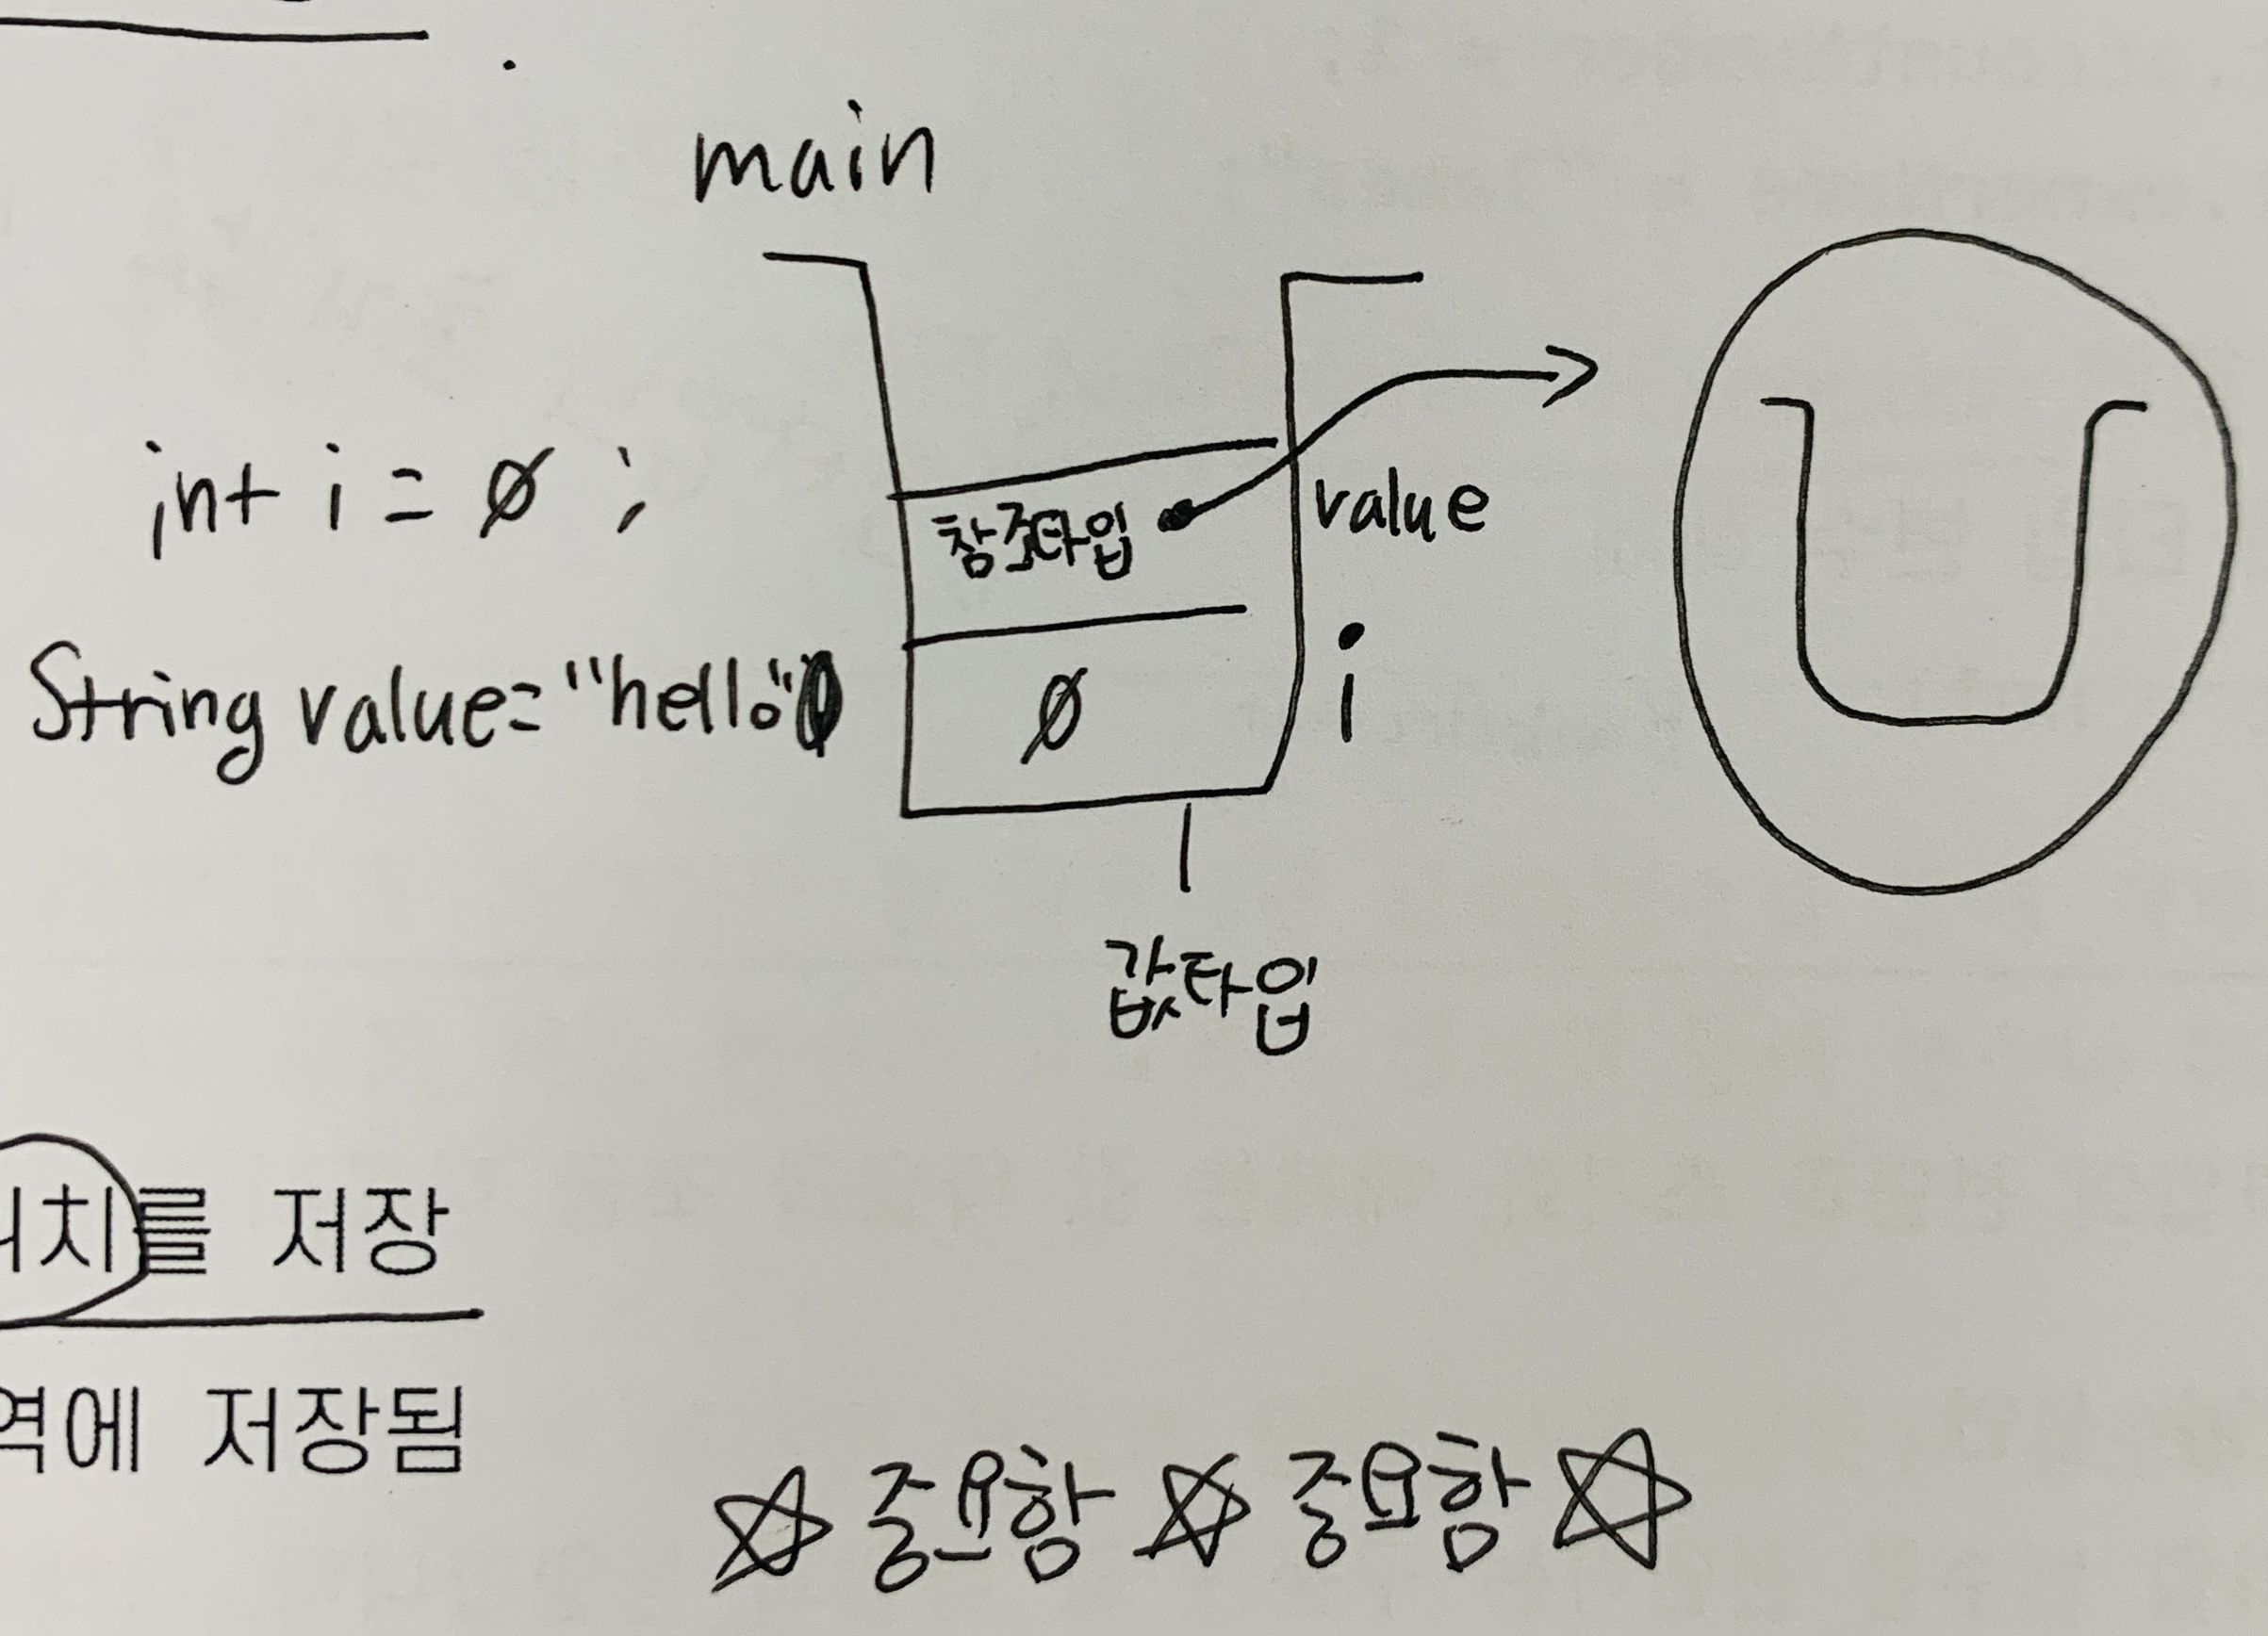 main
int i = 0 ;
참조타입 value
String value="hello"
0 i
값타입
치를 저장
역에 저장됨
☆ 중요함 ☆ 중요함 ☆